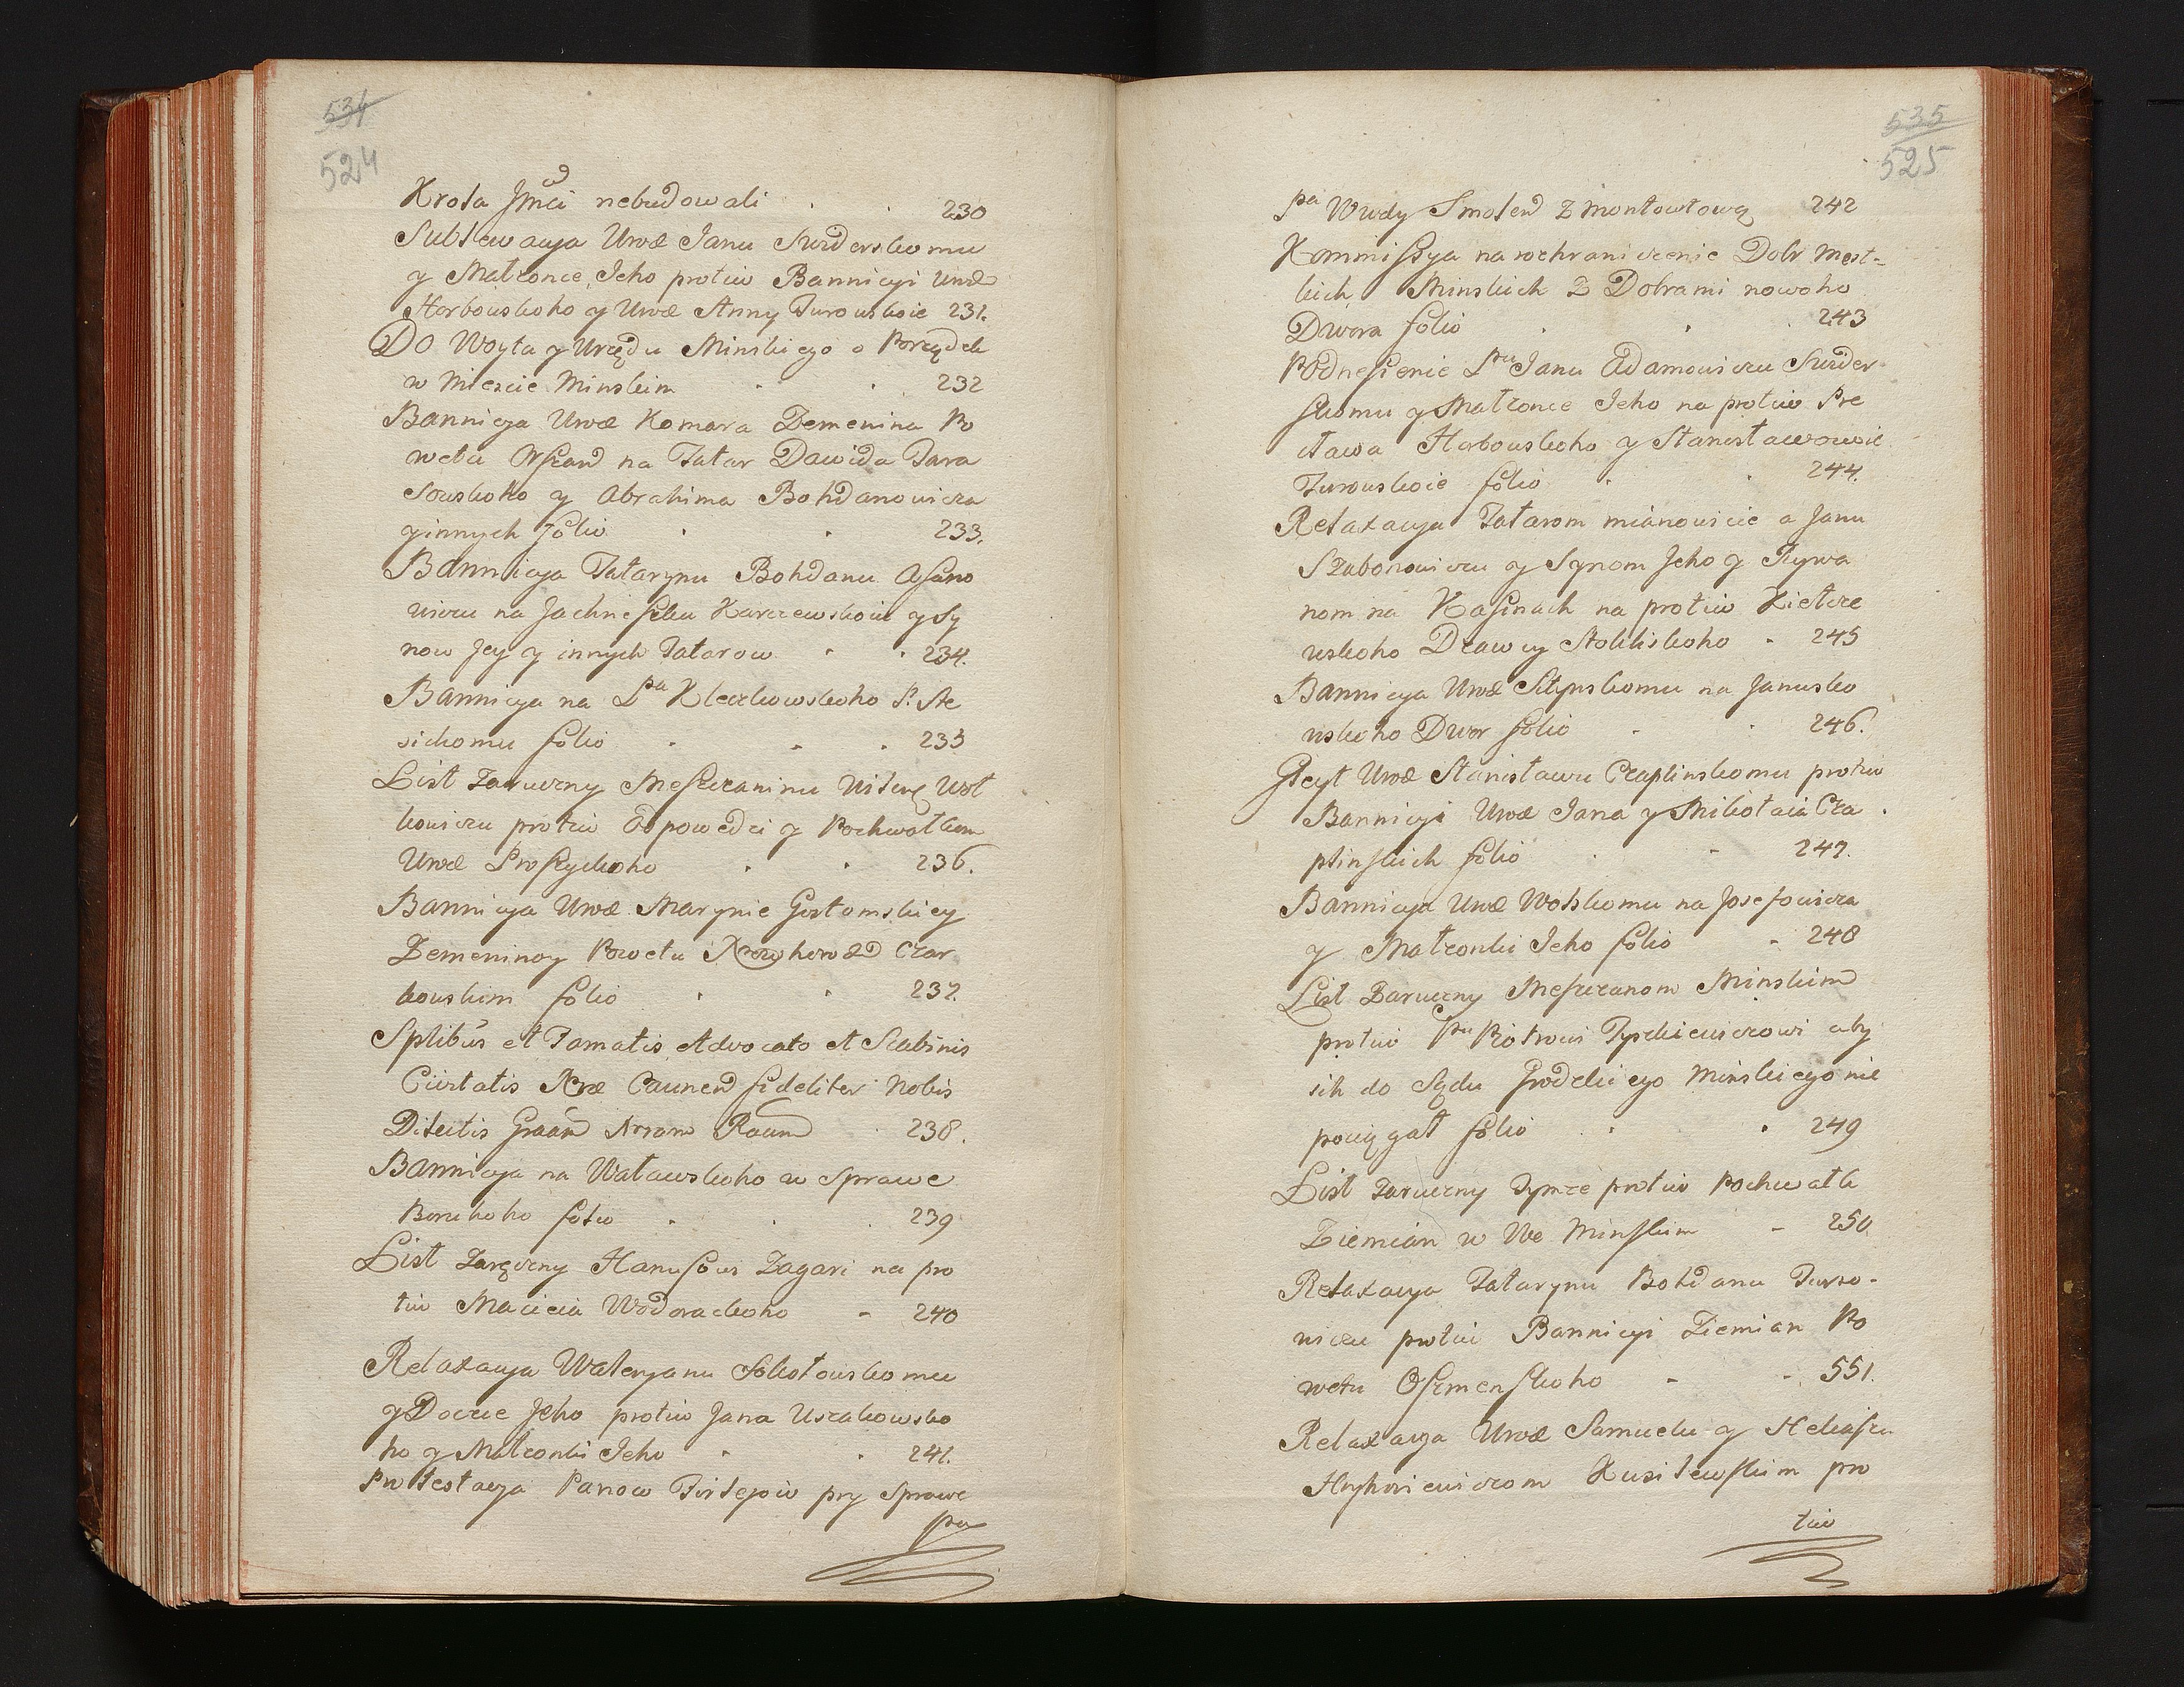 534
524
Krola Jmci nebudowali 230
Sublewacya Urod Janu Surderskomu
y Malzonce Jeho protiw Bannicyi Urod
Horbowskoho y Urod Anny Turowskoie 231.
Do Woyta y Urzędu Minskiego o Porządek
w Miescie Minskim 232
Bannicya Urod Komara Zemenina Po
wetu Orszand na Tatar Dawida Tara
sowskoho y Abrahima Bohdanowicza
y innych folio 233.
Bannicya Tatarynu Bohdanu Asano
wiczu na Jachneszku Karczewskoie y Sy
now Jey y innych Tatarow 234.
Bannicya na Pa Kleczkowskoho P. Ste
sickomu folio 235
List Zaruczny Meszczaninu Wilenę Wol
kowiczu protiw Odpowedzi y Pochwalkom
Urod Proszyckoho 236.
Bannicya Urod Marynie Gostomskiey
Zemeninoy Powetu Nowhorod Czar
kowskim folio 237.
Splibus et Famatis Advocato et Scabinis
Civitatis Nræ Caunen fideliter Nobis
Dilectis Graam Nrram Raum 238.
Bannicya na Walawskoho w Sprawe
Boruhoho folio 239
List Zaręczny Hanusowi Zagari na pro
tiw Macieia Wodorackoho 240
Relaxacya Waleryanu Sokolowskomu
y Docze Jeho protiw Jana Uszakowsko
ho y Malzonki Jeho 241.
Protestacya Panow Firlejow pry Sprawe
pa
535
525
pa Wwdy Smolen Zmontowtową 242
Kommissya na rozhraniczenie Dobr Mest-
kich Minskich z Dobrami nowoho
Dwora folio 243
Podnesienie Pu Janu Adamowiczu Surder
skomu y Malzonce Jeho na protiw Pre
clawa Horbowskoho y Stanislawowie
Turowskoie folio 244.
Relaxacya Tatarom mianowicie a Janu
Szabonowiczu y Synom Jeho y Tywa
nom na Kasinach na protiw Kietrze
wskoho Dzawcy Stokliskoho 245
Bannicya Urod Stypskomu na Janusko
wskoho Dwor folio 246.
Gleyt Urod Stanislawu Czaplinskomu protiw
Bannicyi Urod Jana y Mikolaia Cza
plinskich folio 247.
Bannicya Urod Wolskomu na Josefowicza
y Malzonki Jeho folio 248
List Zaruczny Meszczanom Minskim
protiw Pu Piotrowi Tyszkiewiczowi aby
ich do Sądu Grodzkiego Minskiego nie
pociągał folio 249
List Zaruczny Tymze protiw Pochwalk
Ziemian w We Minskim 250.
Relaxacya Tatarynu Bohdanu Jurso-
wiczu protiw Bannicyi Ziemian Po
wetu Oszmenskoho 551.
Relaxacya Urod Samuelu y Heliaszu
Hryhoriewiczom Kusilewskim pro
tiw